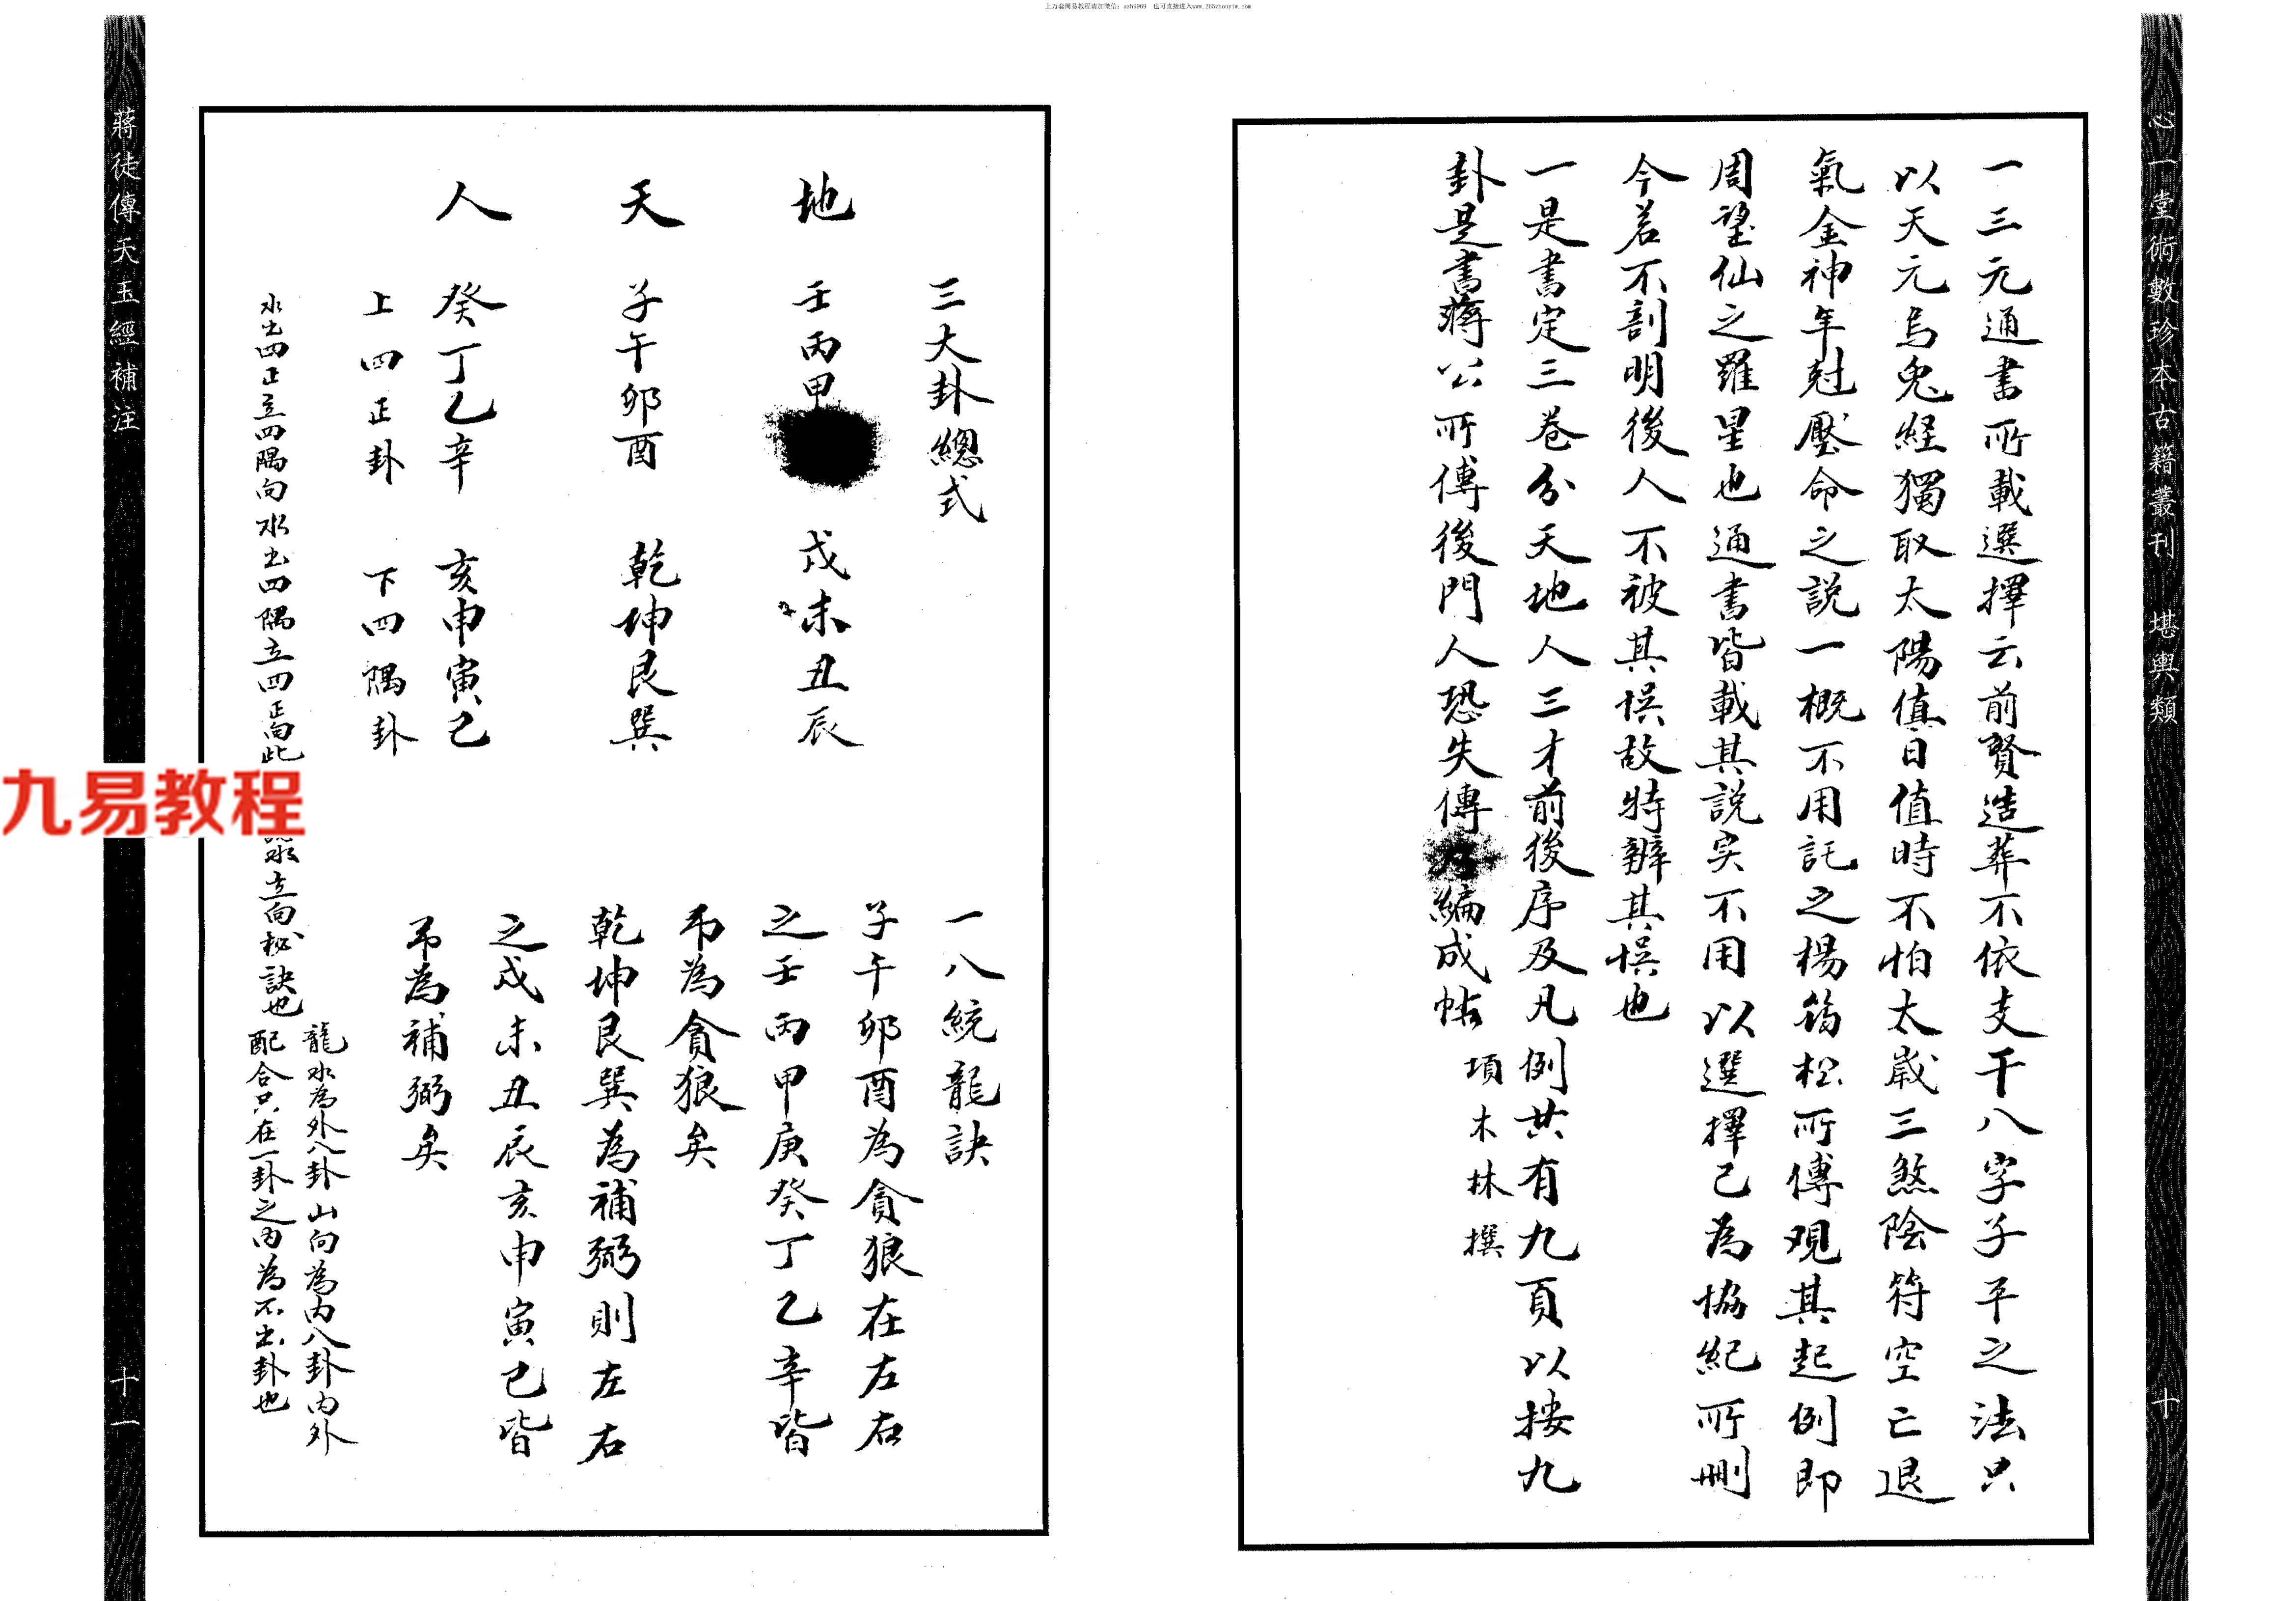 上万套周易教程请加微信：axh9969　也可直接进入www.265zhouyiw.com
心一堂術數珍本古籍叢刊　堪輿類
十
一三元通書所載選擇云前賢造葬不依支干八字子平之法只
以天元烏兔経獨取太陽值日值時不怕太歲三煞陰符空亡退
氣金神年尅壓命之説一概不用託之楊筠松所傳观其起例即
周望仙之羅星也通書皆載其説矣不用以選擇已為協紀所刪
今若不剖明後人不被其悞故特辨其悞也
一是書定三卷分天地人三才前後序及凡例共有九頁以按九
卦是書蔣公所傳後門人恐失傳編成帙
項木林撰
三大卦總式
地　壬丙甲　戌未丑辰
天　子午卯酉　乾坤艮巽
人　癸丁乙辛　亥申寅巳
上四正卦　下四隅卦
水出四正立四隅向水出四隅立四正向此
水立向秘訣也
一八統龍訣
子午卯酉為貪狼在左右
之壬丙甲庚癸丁乙辛皆
弔為貪狼矣
乾坤艮巽為補弼則左右
之戌未丑辰亥申寅巳皆
弔為補弼矣
龍水為外八卦山向為内八卦内外
配合只在一卦之内為不出卦也
蔣徒傳天玉經補注
十一
九易教程